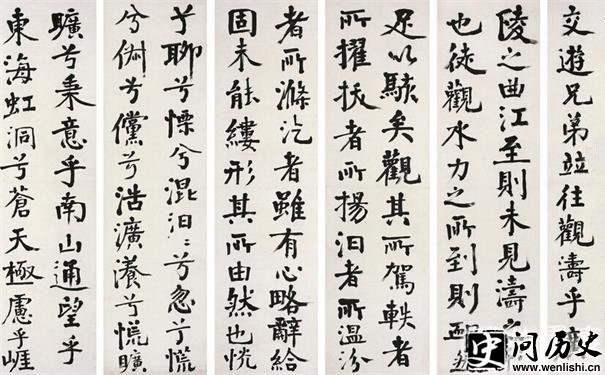 交遊兄弟並往觀濤乎廣
陵之曲江至則未見濤之
也徒觀水力之所到則卹然
足以駭矣觀其所駕軼者
所擢拔者所揚汨者所温汾
者所滌汔者雖有心略辭給
固未能縷形其所由然也怳
兮聊兮慄兮混汨〻兮忽兮慌
兮俶兮儻兮浩瀇瀁兮慌曠
曠兮秉意乎南山通望乎
東海虹洞兮蒼天極慮乎崕
问历史
www.wenlishi.cn